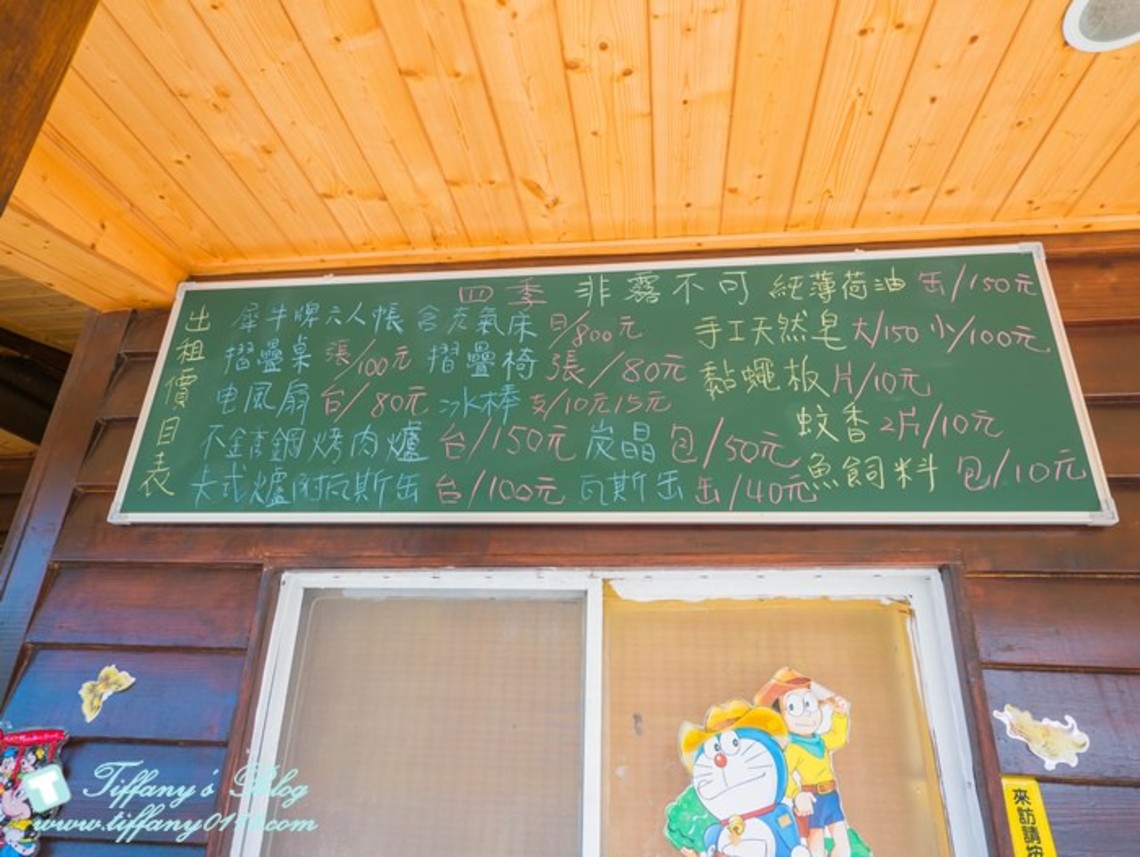 出租價目表
四季 非露不可
犀牛牌六人帳含充氣床 日/800元
摺疊桌 張/100元 摺疊椅 張/80元
电風扇 台/80元 冰棒 支/10元15元
不銹鋼烤肉爐 台/150元 炭晶 包/50元
卡式爐附瓦斯缶 台/100元 瓦斯缶 缶/40元
純薄荷油 缶/150元
手工天然皂 大/150 小/100元
黏蠅板 片/10元
蚊香 2片/10元
魚飼料 包/10元
來訪請按
Tiffany's Blog